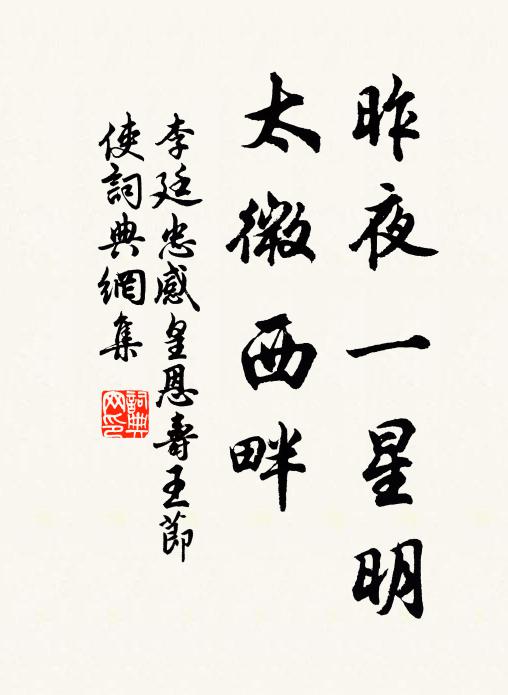 昨夜一星明
太微西畔
李廷忠感皇恩壽王節
使詞典網集
詞典
网印